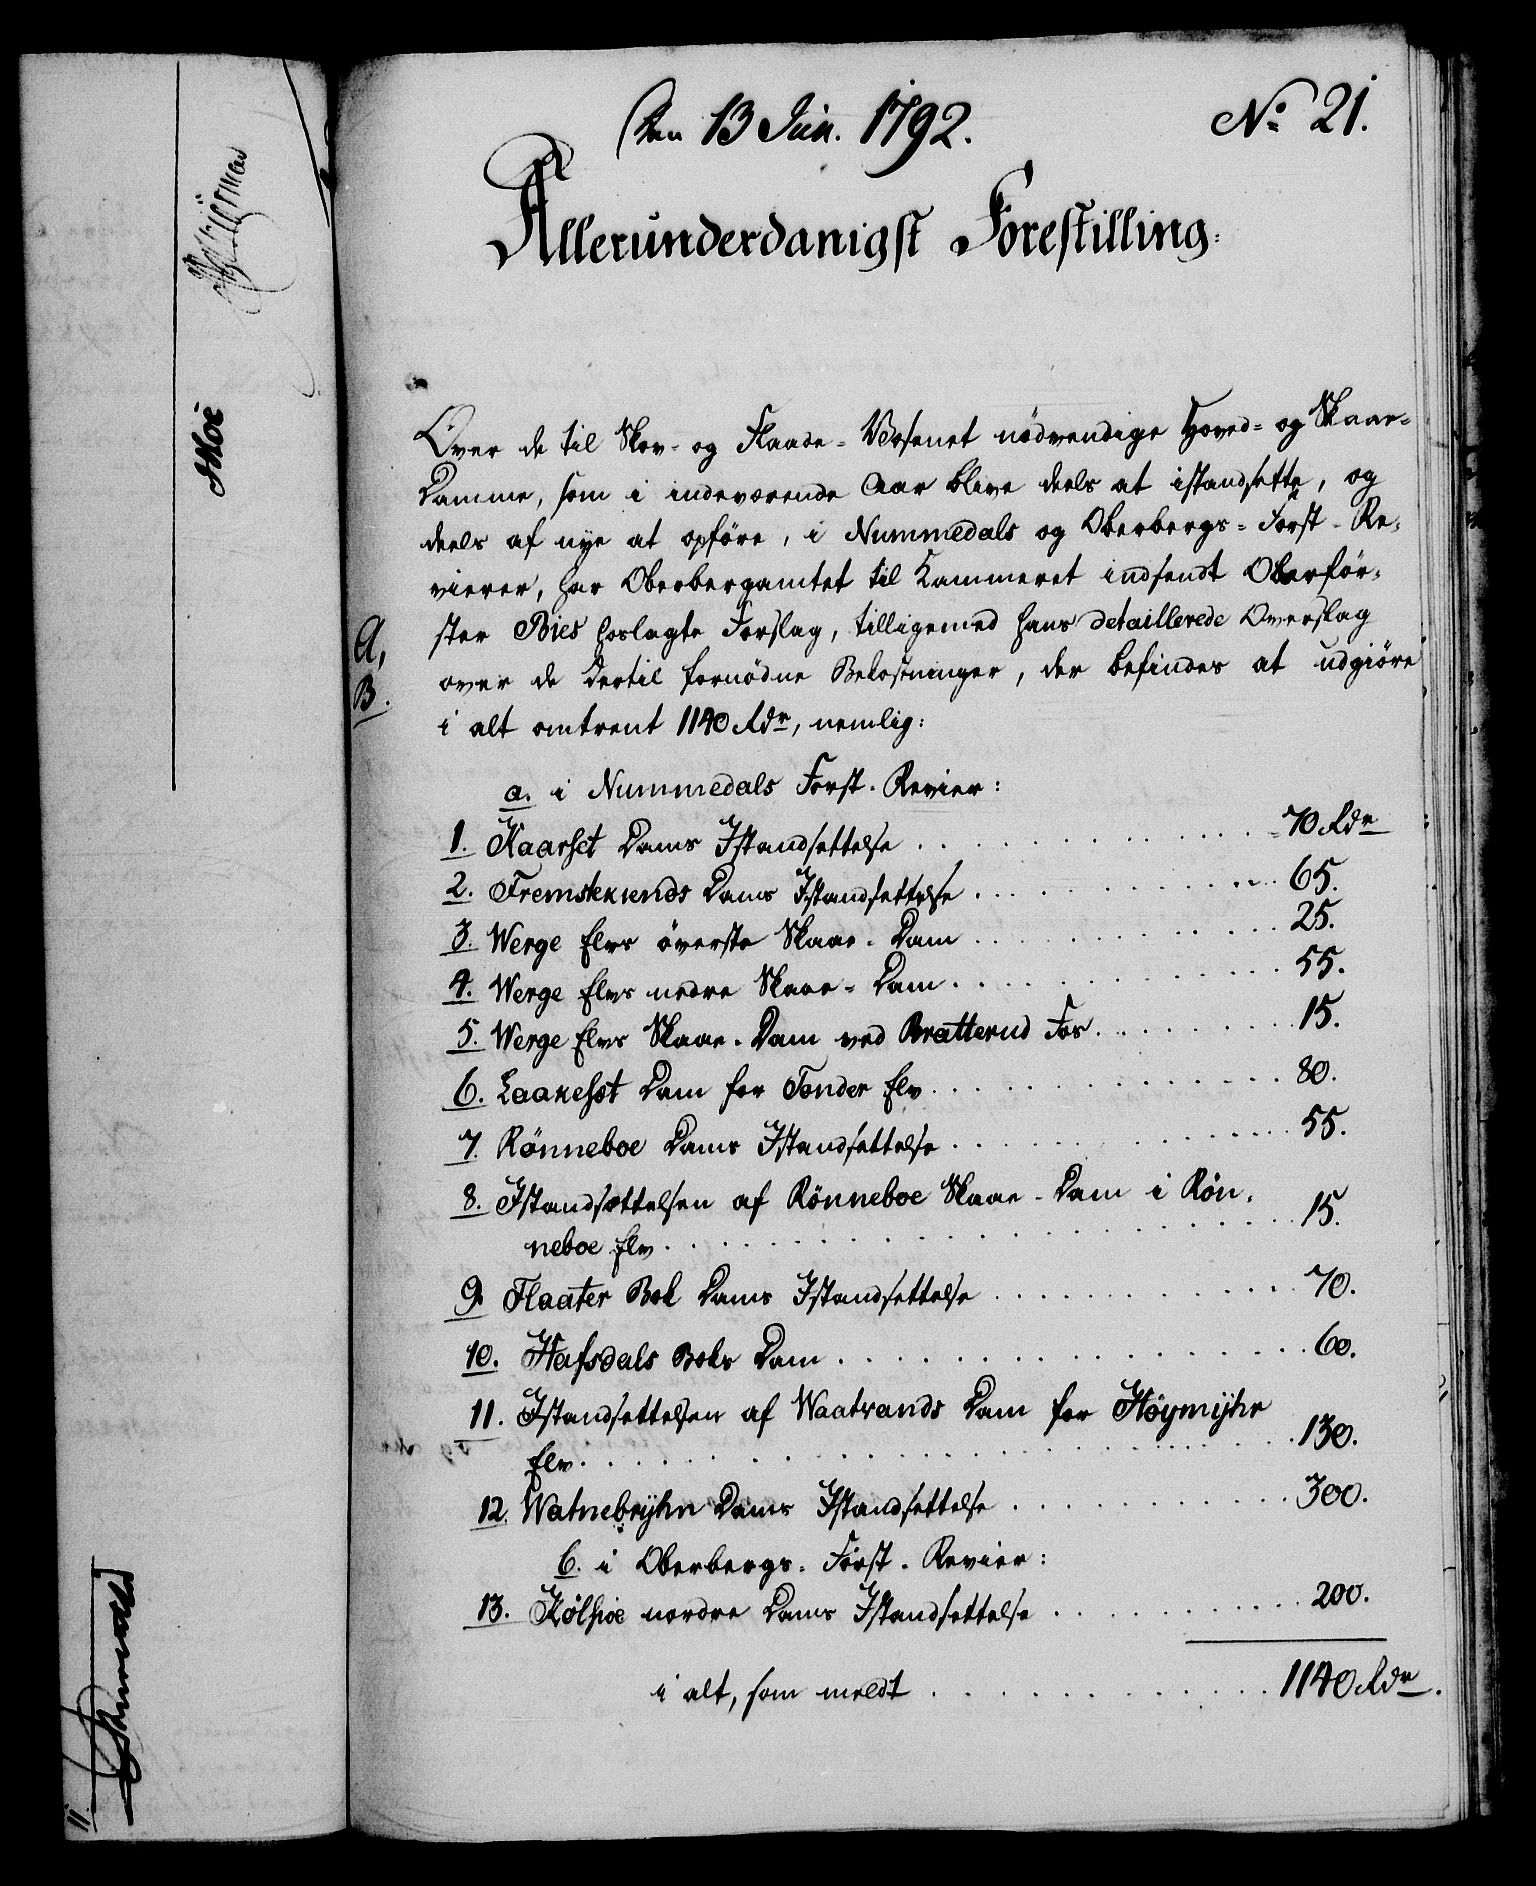 Den 13 Jun. 1792.
No 21.
Allerunderdanigst Forestilling.
Over de til Skov- og Flaade-Væsenet nödvendige Hoved- og Skaar-
Damme, som i indeværende Aar blive deels at istandsette, og
deels af nye at opföre, i Nummedals og Oberbergs-Forst-Re-
vierer, har Oberbergamtet til Kammeret indsendt Oberför-
A,
ster Bies hoslagte Forslag, tilligemed hans detaillerede Overslag
B.
over de dertil fornödne Bekostninger, der befindes at udgiöre
i alt omtrent 1140 Rdr, nemlig:
a. i Nummedals Forst-Revier:
1. Kaarset Dams Istandsettelse . . . 70 Rdr
2. Fremstekunds Dams Istandsettelse . . . 65.
3. Werge Elvs överste Skaar-Dam . . . 25.
4. Werge Elvs nedre Skaar-Dam . . . 55.
5. Werge Elvs Skaar-Dam ved Bratterud Fos . . . 15.
6. Laakesöt Dam for Tonder Elv . . . 80.
7. Rönneboe Dams Istandsettelse . . . 55.
8. Istandsættelsen af Rönneboe Skaar-Dam i Rön-
neboe Elv . . . 15.
9. Flaater Bek Dams Istandsettelse . . . 70.
10. Hafsdals Beks Dam . . . 60.
11. Istandsettelsen af Waatvands Dam for Höymyhr
Elv . . . 130.
12. Watnebryhn Dams Istandsettelse . . . 300.
b. i Oberbergs-Forst-Revier:
13. Kolsioe nordre Dams Istandsettelse . . . 200.
i alt, som meldt . . . 1140 Rdr.